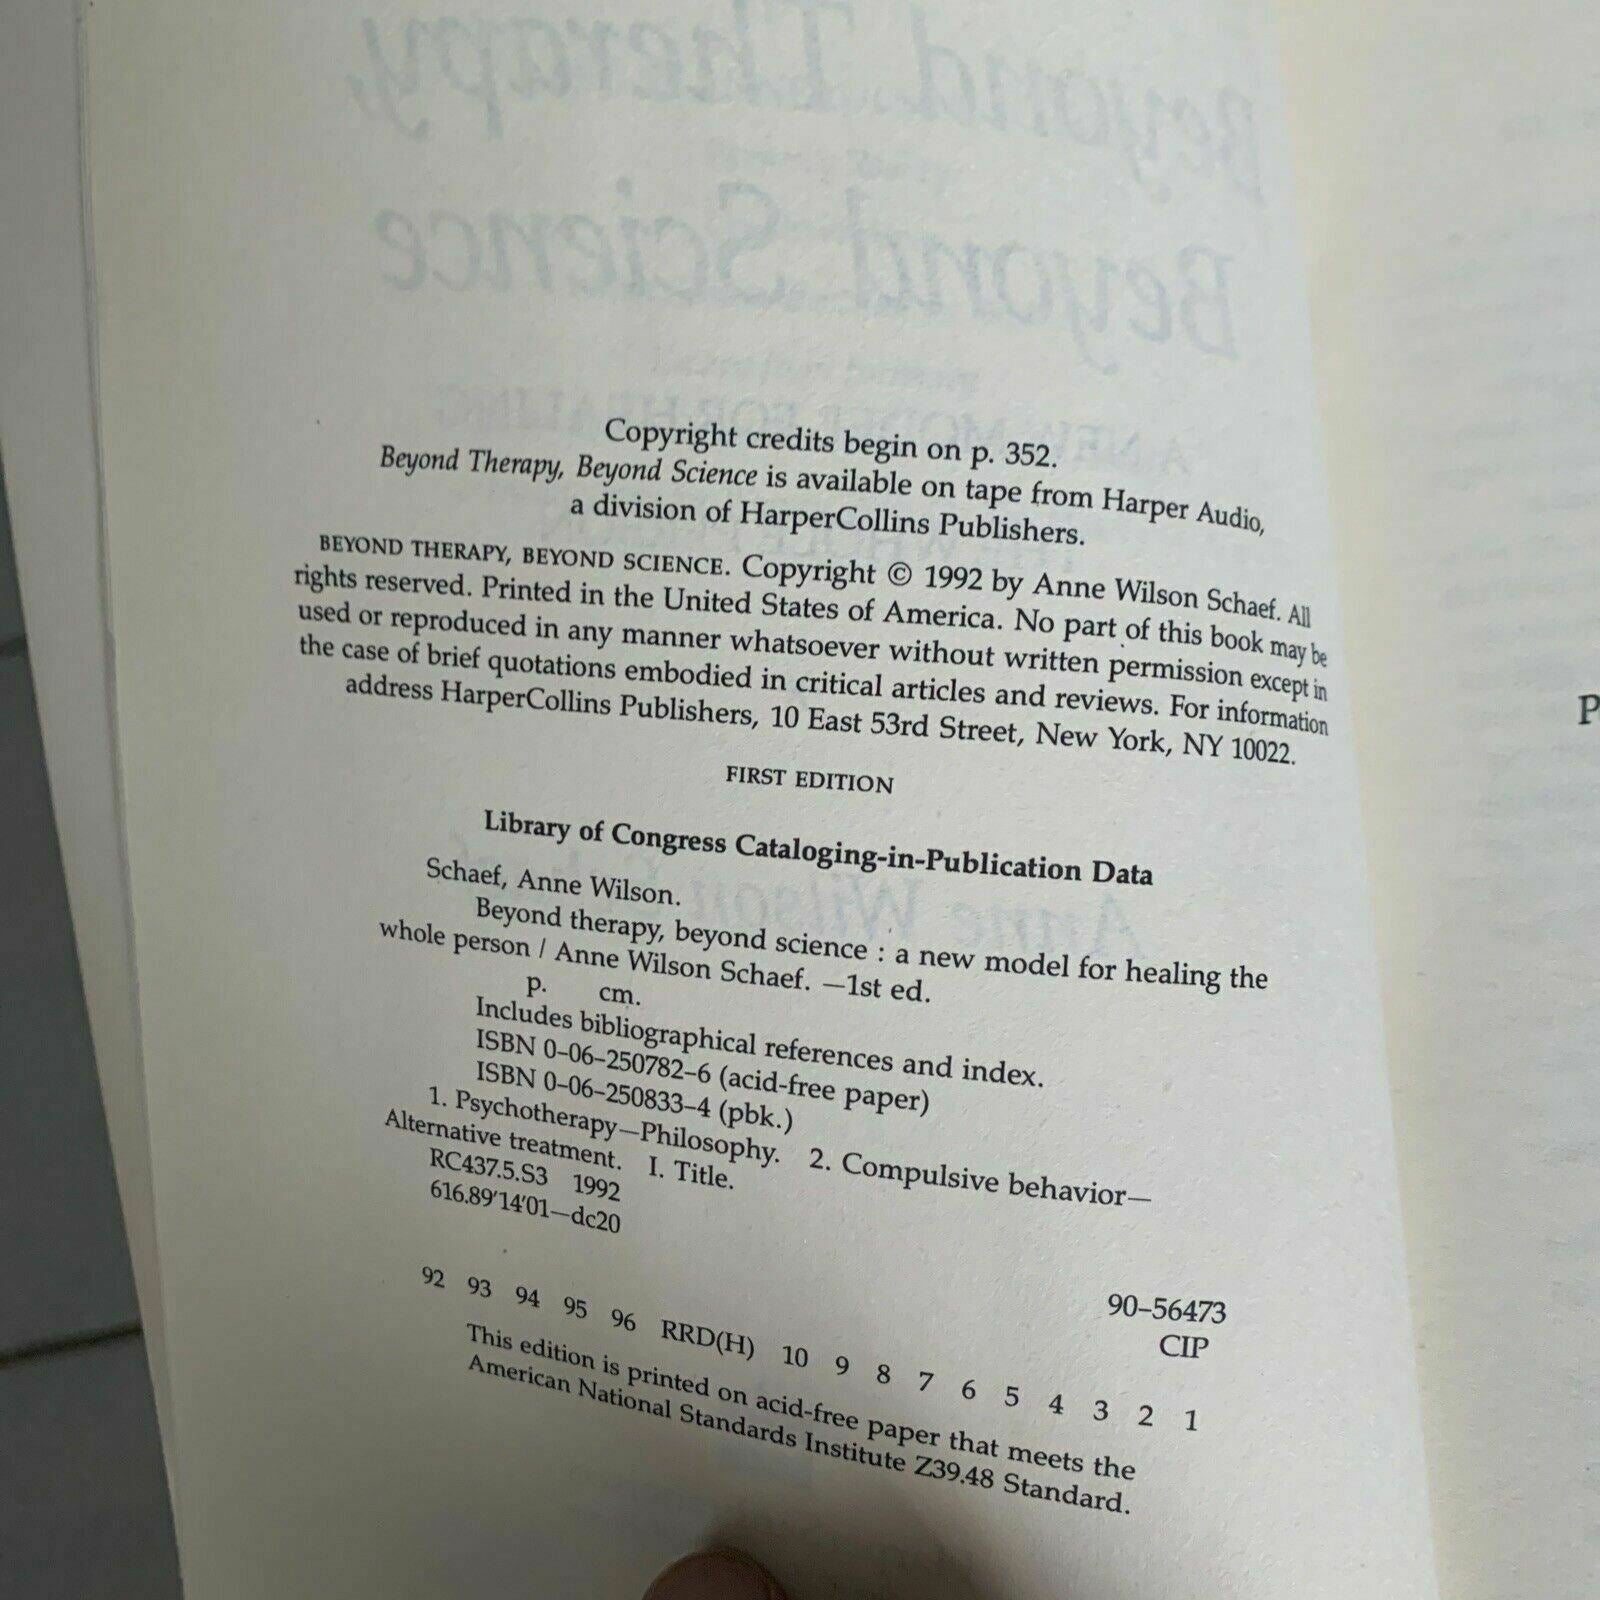 Beyond Therapy,
Beyond Science
A NEW MODEL FOR HEALING
Copyright credits begin on p. 352.
Beyond Therapy, Beyond Science is available on tape from Harper Audio,
a division of HarperCollins Publishers.
BEYOND THERAPY, BEYOND SCIENCE. Copyright © 1992 by Anne Wilson Schaef. All
rights reserved. Printed in the United States of America. No part of this book may be
used or reproduced in any manner whatsoever without written permission except in
the case of brief quotations embodied in critical articles and reviews. For information
address HarperCollins Publishers, 10 East 53rd Street, New York, NY 10022.
FIRST EDITION
Library of Congress Cataloging-in-Publication Data
Anne Wilson
Schaef, Anne Wilson.
Beyond therapy, beyond science : a new model for healing the
whole person / Anne Wilson Schaef. —1st ed.
p. cm.
Includes bibliographical references and index.
ISBN 0–06–250782–6 (acid-free paper)
ISBN 0–06–250833–4 (pbk.)
1. Psychotherapy—Philosophy. 2. Compulsive behavior—
Alternative treatment. I. Title.
RC437.5.S3 1992
616.89'14'01—dc20
90–56473
CIP
92 93 94 95 96 RRD(H) 10 9 8 7 6 5 4 3 2 1
This edition is printed on acid-free paper that meets the
American National Standards Institute Z39.48 Standard.
P